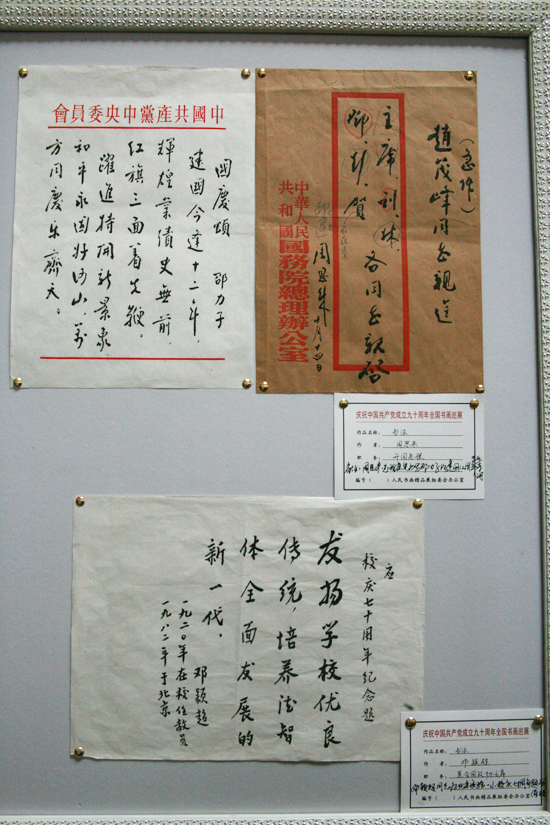 中國共產黨中央委員會
國慶頌 邵力子
建国今逢十二年，
輝煌業績史無前，
红旗三面着先鞭，
躍進持開新景象
和平永固壮河山，万
方同慶乐齊天。
(急件)
趙茂峰同志親送
主席、刘、林、
鄧、彭、賀 各同志親啓
周恩来 十月十四日
中華人民
共和國
國務院總理辦公室
庆祝中国共产党成立九十周年全国书画巡展
作品名称: 书法
作 者: 周恩来
职 务: 开国总理
编号( )人民书画精品展组委会办公室
应
校庆七十周年纪念题
发扬学校优良
传统，培养德智
体全面发展的
新一代。
邓颖超
一九二○年在校任教员
一九八二年于北京
庆祝中国共产党成立九十周年全国书画巡展
作品名称: 书法
作 者: 邓颖超
职 务:
编号( )人民书画精品展组委会办公室